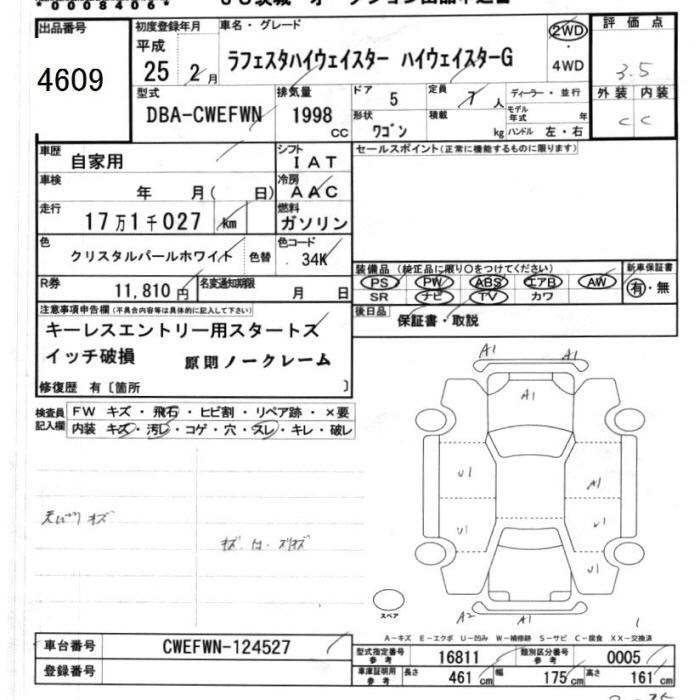 *0008406*
出品番号 4609
初度登録年月 平成 25 年 2 月
車名・グレード ラフェスタハイウェイスター ハイウェイスターG
2WD 4WD
評価点 3.5
外装 内装
C C
型式 DBA-CWEFWN
排気量 1998 CC
ドア 5
定員 7 人
形状 ワゴン
積載 kg
ディーラー・並行
モデル年式 年
ハンドル 左・右
車歴 自家用
シフト IAT
セールスポイント(正常に機能するものに限ります)
車検 年 月( 日)
冷房 AAC
走行 17万1千027 km
燃料 ガソリン
色 クリスタルパールホワイト 色替
色コード 34K
R券 11,810 円
名変通知期限 月 日
装備品 (純正品に限り○をつけてください)
新車保証書
PS PW ABS エアB AW
有・無
SR ナビ TV カワ
後日品 保証書・取説
注意事項申告欄(不具合内容等は具体的に記入して下さい)
キーレスエントリー用スタートス
イッチ破損 原則ノークレーム
修復歴 有〔箇所 〕
検査員記入欄
FW キズ・飛石・ヒビ割・リペア跡・×要
内装 キズ・汚レ・コゲ・穴・スレ・キレ・破レ
A1 A1
A1
U1 A1
U1 U1
U1
A2 A1
スペア
A-キズ E-エクボ U-凹み W-補修跡 S-サビ C-腐食 XX-交換済
車台番号 CWEFWN-124527
登録番号
型式指定番号 参考 16811
類別区分番号 参考 0005
車庫証明用 参考 長さ 461 cm 幅 175 cm 高さ 161 cm